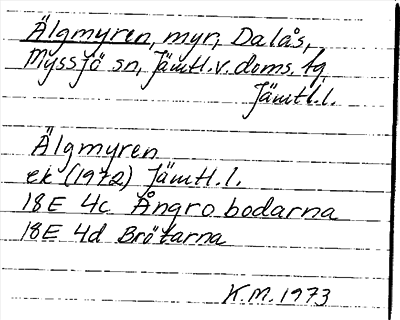 Älgmyren, myr, Dalås,
Myssjö sn, Jämtl.v.doms. tg
Jämtl.l.
Älgmyren
ek (1972) Jämtl.l.
18E 4c Ångrobodarna
18E 4d Brötarna
K.M.1973